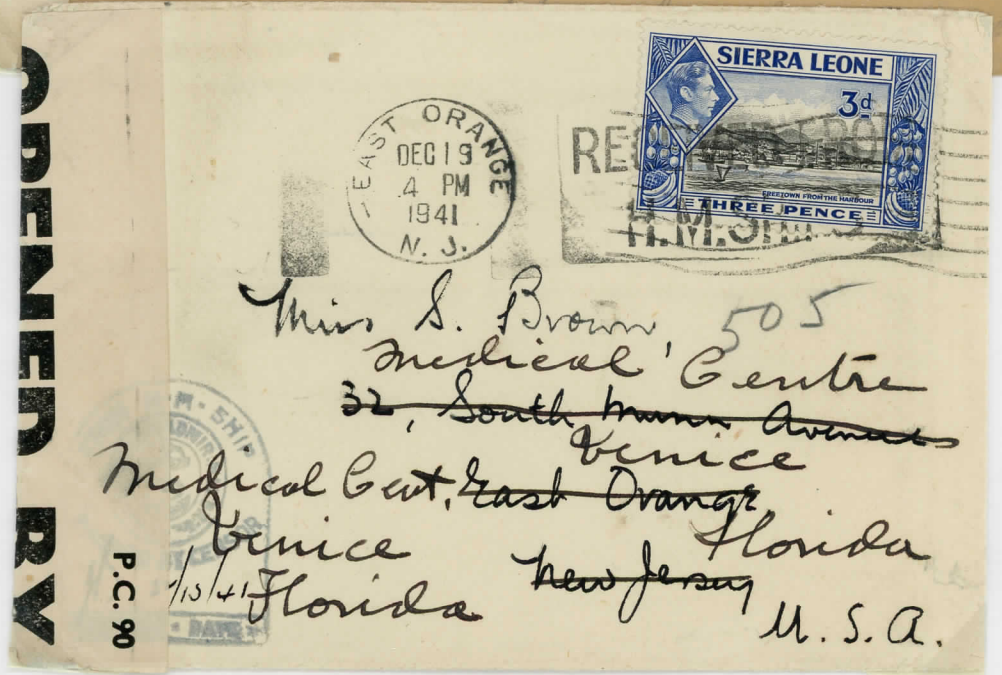 OPENED BY
P.C. 90
EAST ORANGE
DEC 19
4 PM
1941
N. J.
SIERRA LEONE
3d
FREETOWN FROM THE HARBOUR
THREE PENCE
H.M.SHIPS
505
Miss S. Brown,
Medical Centre
32, South Munn Avenue
Venice
Medical Cent. East Orange,
Venice Florida
Florida New Jersey
U. S. A.
SHIP
DATE